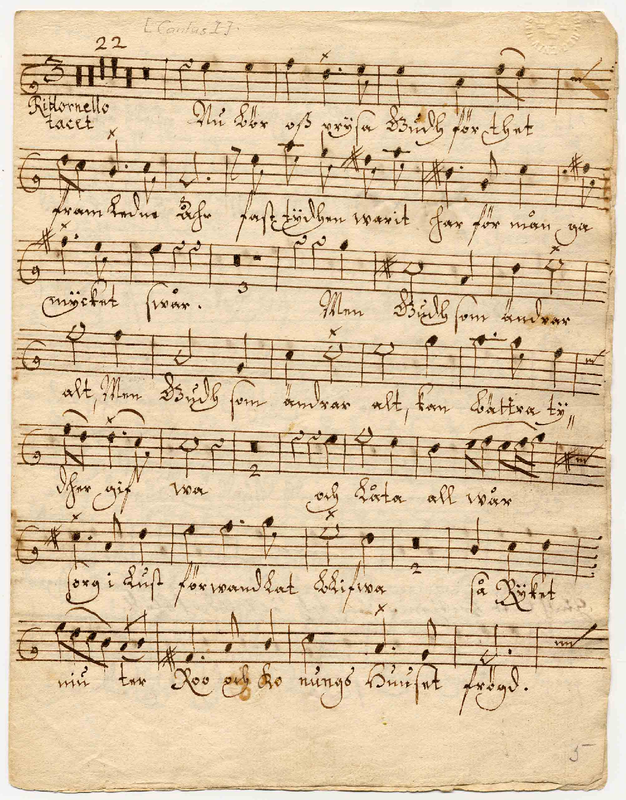 [Cantus I].
22
3
Ritornello
tacet
Nu bör oß prÿsa Gudh för thet
framledne åhr fast tÿdhen warit har för mån ga
mÿcket swår.
3
Men Gudh som ändrar
alt, Men Gudh som ändrar alt, kan bättra tÿ„
dher gif wa
2
och låta all wår
sorg i lust förwandlat blifwa
2
så Rÿket
niu ter Roo och Ko nungs Huuset frögd.
5